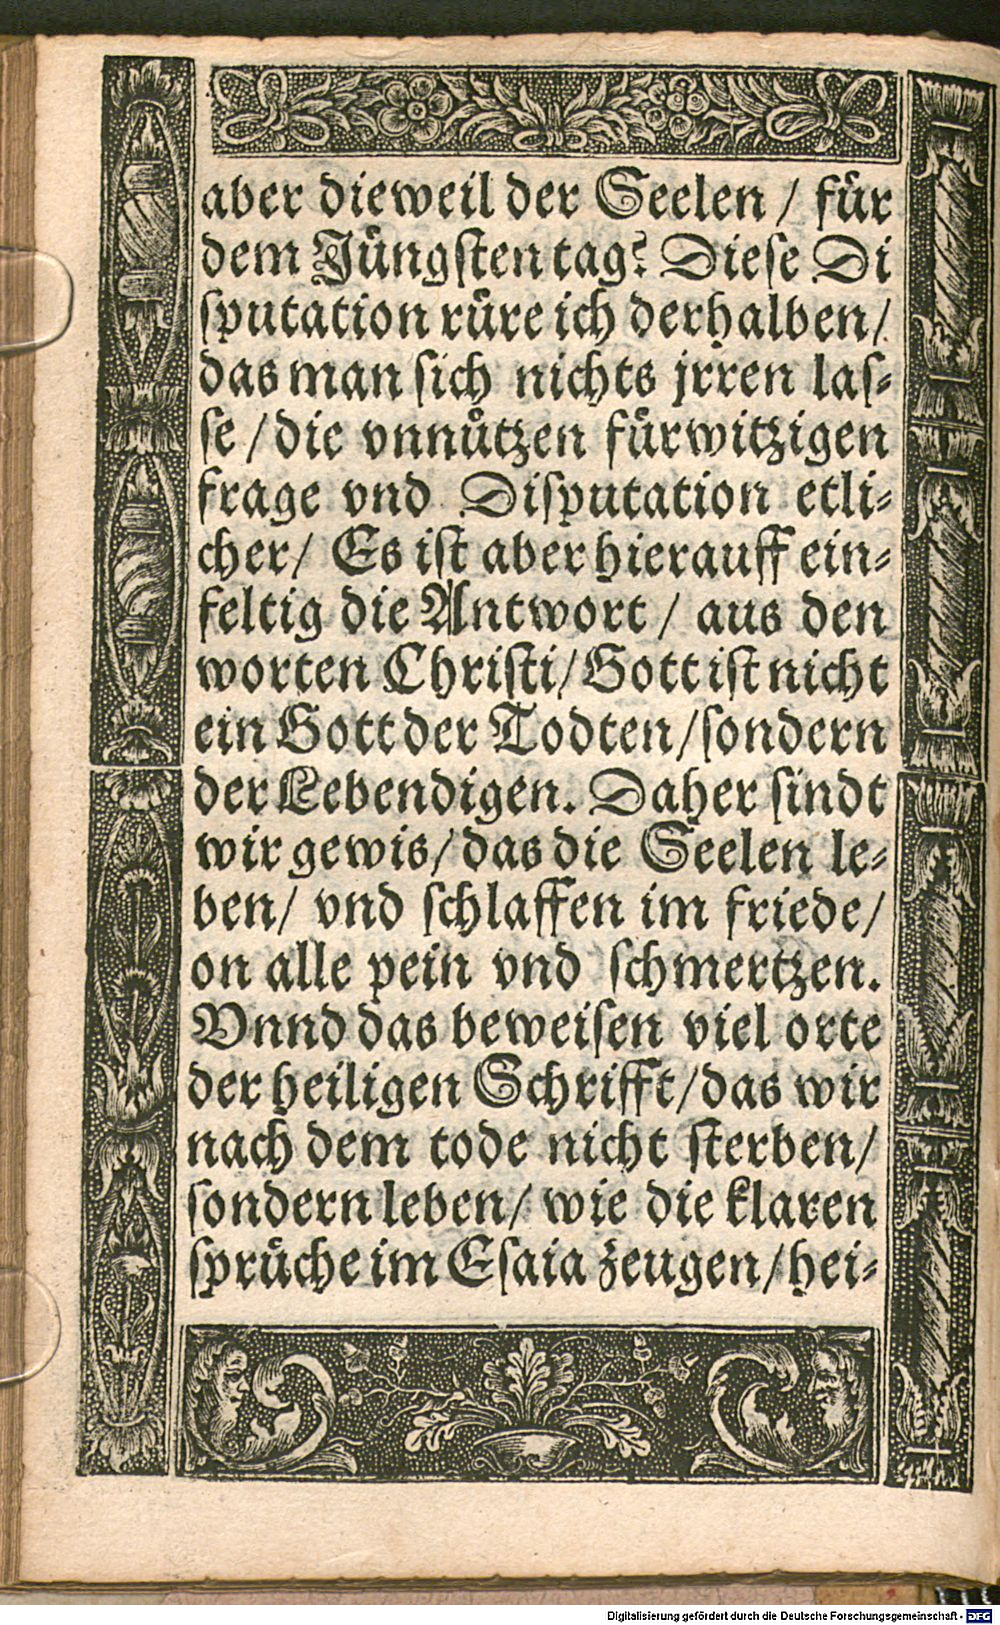 aber dieweil der Seelen / für
dem Jüngsten tag? Diese Di
sputation rüre ich derhalben /
das man sich nichts jrren las⸗
se / die vnnützen fürwitzigen
frage vnd Disputation etli⸗
cher / Es ist aber hierauff ein⸗
feltig die Antwort / aus den
worten Christi / Gott ist nicht
ein Gott der Todten / sondern
der Lebendigen. Daher sindt
wir gewis / das die Seelen le⸗
ben / vnd schlaffen im friede /
on alle pein vnd schmertzen.
Vnnd das beweisen viel orte
der heiligen Schrifft / das wir
nach dem tode nicht sterben /
sondern leben / wie die klaren
sprüche im Esaia zeugen / hei⸗
Digitalisierung gefördert durch die Deutsche Forschungsgemeinschaft - DFG